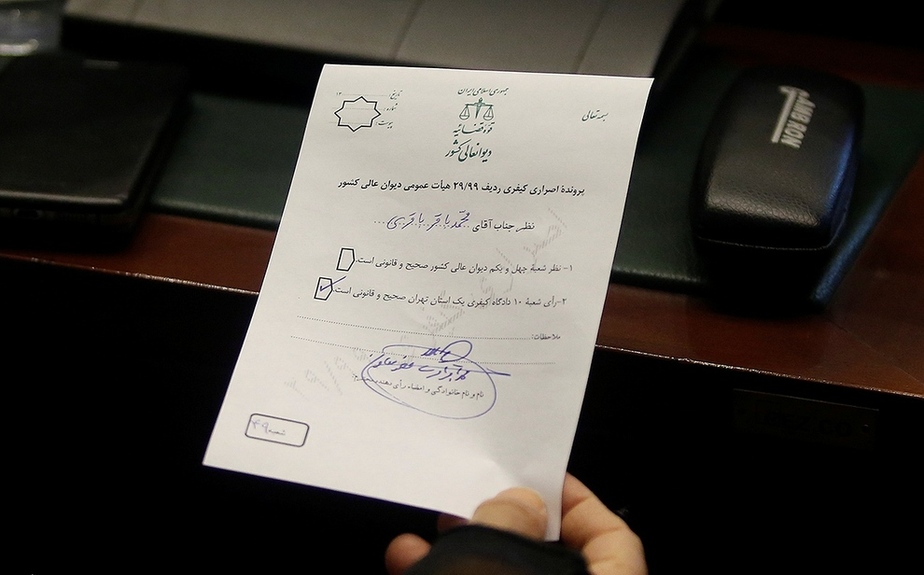 بسمه تعالی
جمهوری اسلامی ایران
قوه قضائیه
دیوانعالی کشور
تاریخ: ............ ۱۳
شماره:
پیوست:
پروندهٔ اصراری کیفری ردیف ۲۹/۹۹ هیأت عمومی دیوان عالی کشور
نظر جناب آقای محمدباقر باقری ...
۱- نظر شعبهٔ چهل و یکم دیوان عالی کشور صحیح و قانونی است.
۲-رأی شعبهٔ ۱۰ دادگاه کیفری یک استان تهران صحیح و قانونی است.
ملاحظات:
نام و نام خانوادگی و امضاء رأی دهنده
شعبه ۴۹
AMB RON